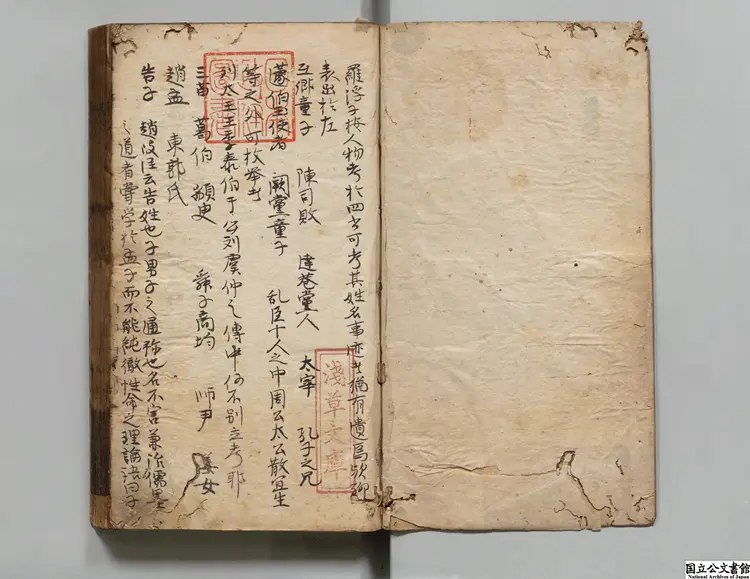 羅浮子按人物考於四書可考其姓名事迹者猶有遺焉欤聊
表出於左
互郷童子 陳司敗 達巷黨人 太宰 孔子之兄
蘧伯玉使者 闕黨童子 乱臣十人之中周公太公散宜生
等之分可枚挙
列大王王季泰伯于公刘虞仲之傳中何不別立考耶
三苗 葛伯 瞽瞍 舜子商均 師尹 姜女
趙孟 東郭氏
告子 趙岐注云告姓也子男子之通称也名不害兼治儒墨
之道者嘗学於孟子而不能純徹性命之理論語曰子
淺草文庫
国立公文書館
National Archives of Japan